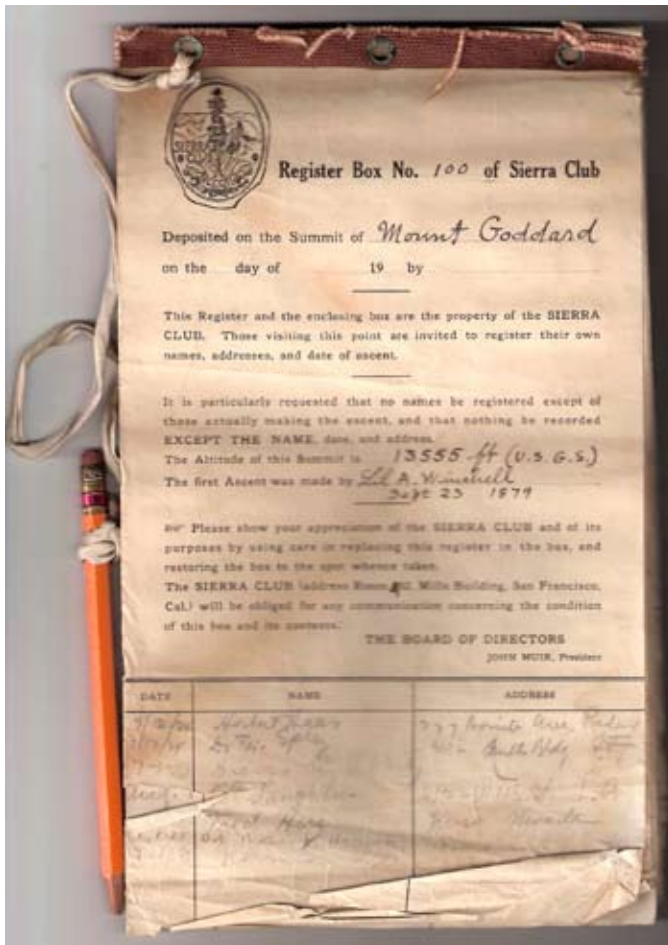 SIERRA
CLUB
Register Box No. 100 of Sierra Club
Deposited on the Summit of Mount Goddard
on the day of 19 by
This Register and the enclosing box are the property of the SIERRA
CLUB. Those visiting this point are invited to register their own
names, addresses, and date of ascent.
It is particularly requested that no names be registered except of
those actually making the ascent, and that nothing be recorded
EXCEPT THE NAME, date, and address.
The Altitude of this Summit is 13555 ft (U.S.G.S.)
The first Ascent was made by Lil A. Winchell
Sept 23 1879
Please show your appreciation of the SIERRA CLUB and of its
purposes by using care in replacing this register in the box, and
restoring the box to the spot whence taken.
The SIERRA CLUB (address Room Mills Building, San Francisco,
Cal.) will be obliged for any communication concerning the condition
of this box and its contents.
THE BOARD OF DIRECTORS
JOHN MUIR, President
DATE NAME ADDRESS
Ave
Bldg